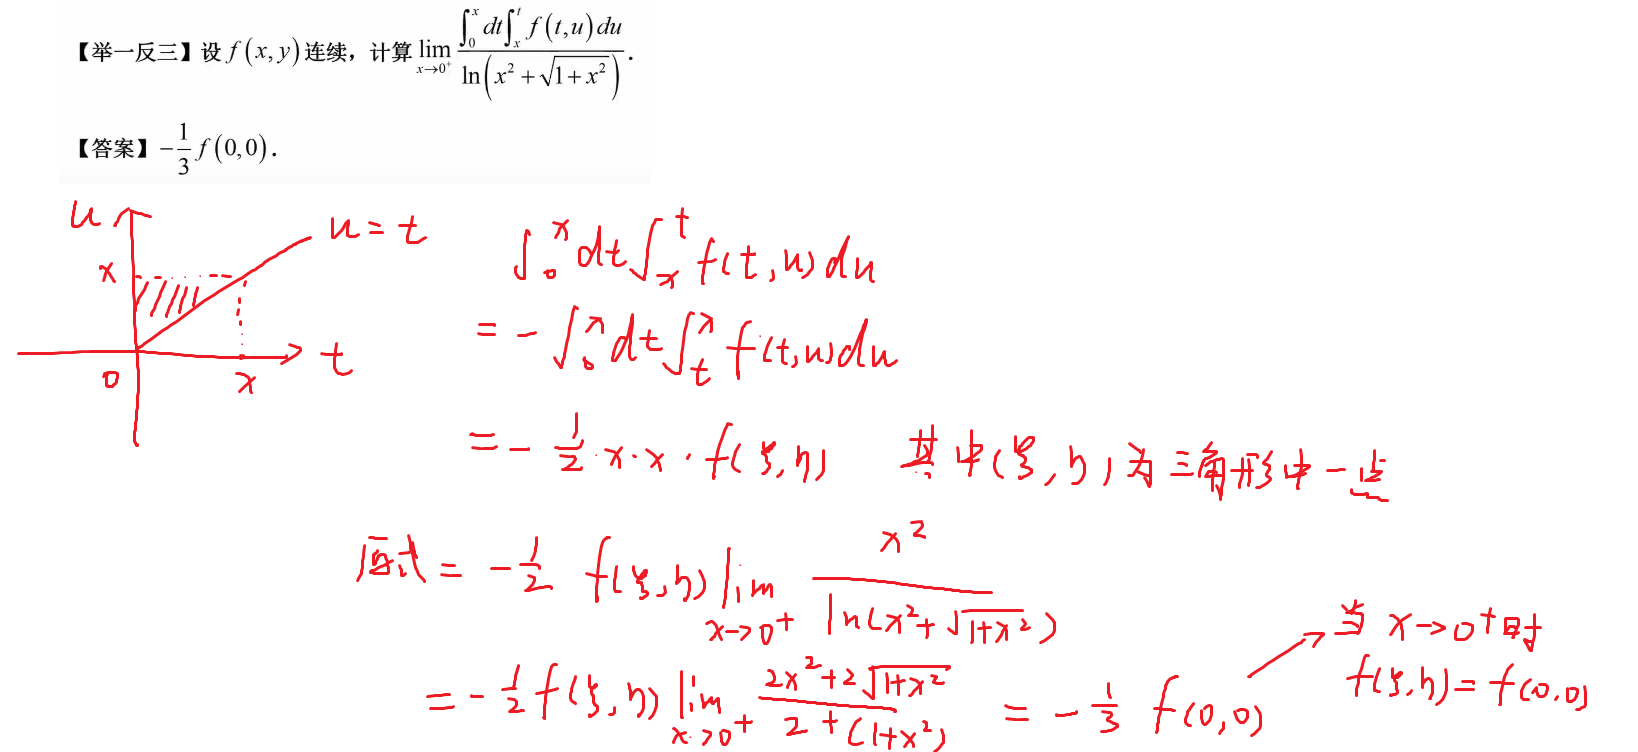 【举一反三】设 f(x,y) 连续，计算 lim_{x→0⁺} \frac{∫_0^x dt∫_x^t f(t,u)du}{ln(x²+√(1+x²))}.
【答案】-\frac{1}{3} f(0,0).
u
u=t
x
0
x
t
∫_0^x dt∫_x^t f(t,u)du
= -∫_0^x dt∫_t^x f(t,u)du
= -\frac{1}{2}·x·x·f(ξ,η) 其中(ξ,η)为三角形中一点
原式 = -\frac{1}{2} f(ξ,η) lim_{x→0+} \frac{x²}{ln(x²+√(1+x²))}
= -\frac{1}{2} f(ξ,η) lim_{x→0+} \frac{2x²+2√(1+x²)}{2+(1+x²)} = -\frac{1}{3} f(0,0)
当 x→0⁺时
f(ξ,η)=f(0,0)